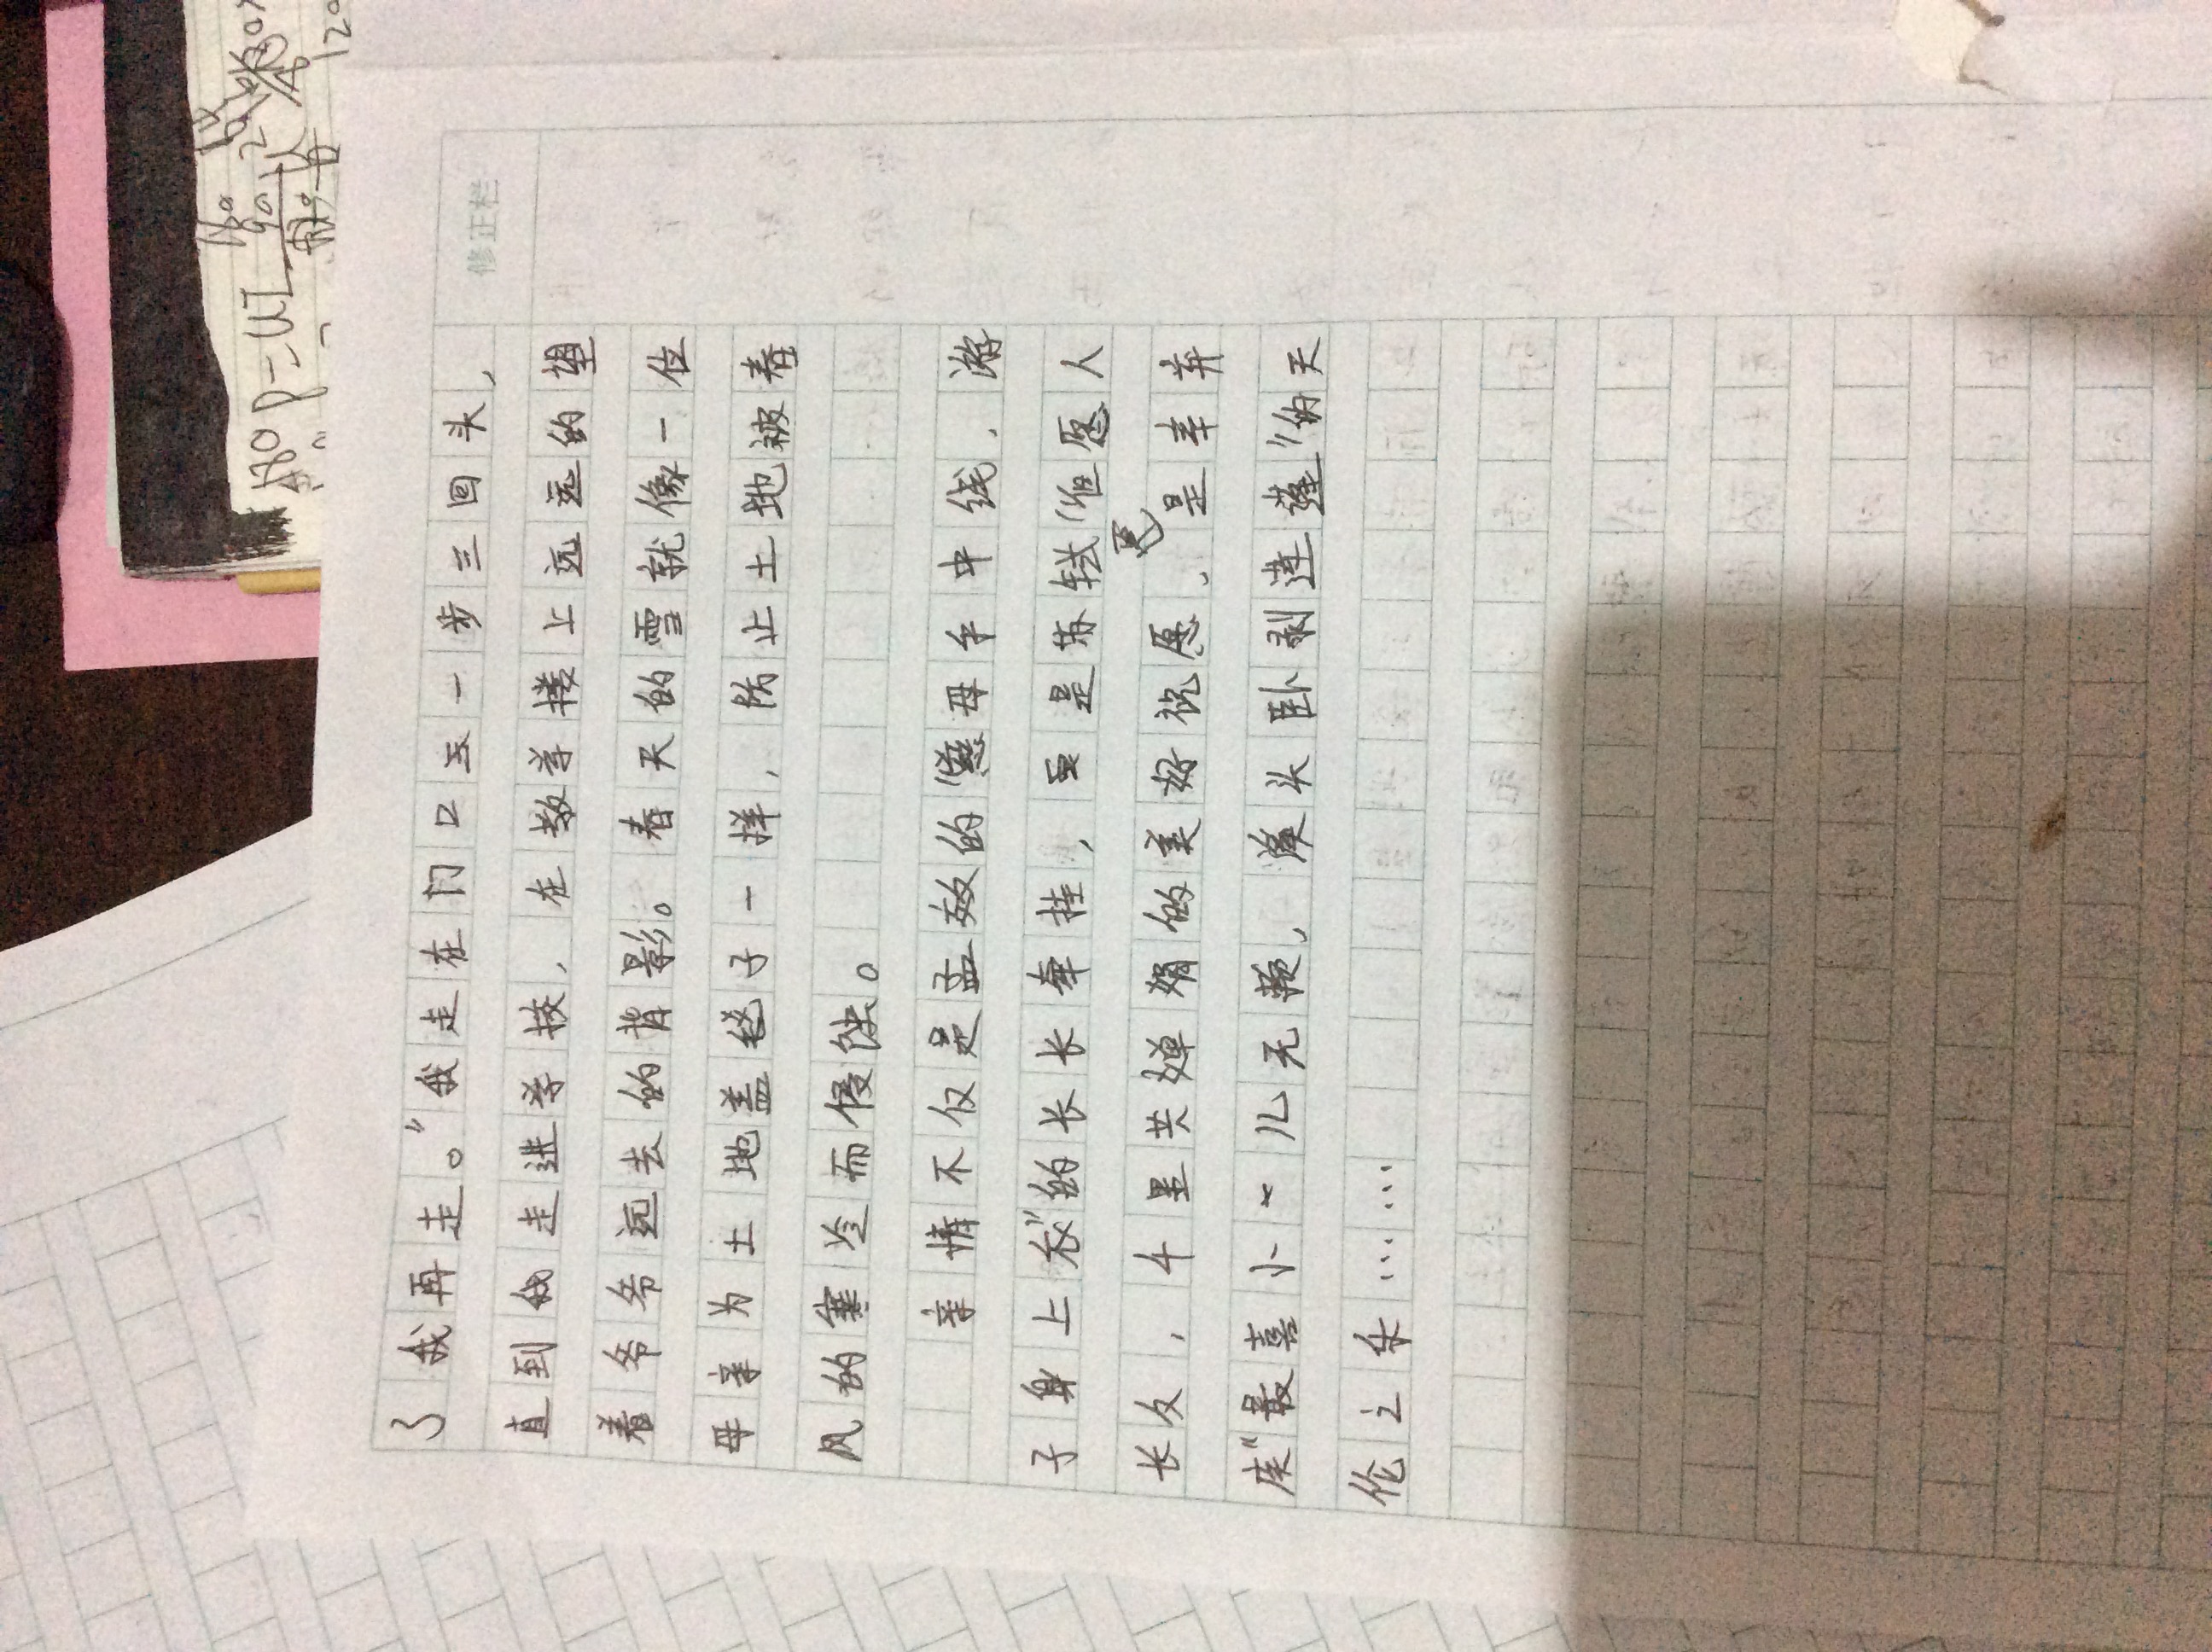 修正栏
了我再走。”我走在门口五一步三回头，
直到我走进学校，在教学楼上远远的望
着爷爷远去的背影。春天的雪就像一位
母亲为土地盖毯子一样，防止土地被春
风的寒冷而侵蚀。
亲情不仅是孟郊的“慈母手中线，游
子身上衣”的长长长牵挂，更是苏轼“但愿人
长久，千里共婵娟的美好祝愿，更是辛弃
疾“最喜小儿无赖，溪头卧剥莲蓬”的天
伦之乐……
P=UI